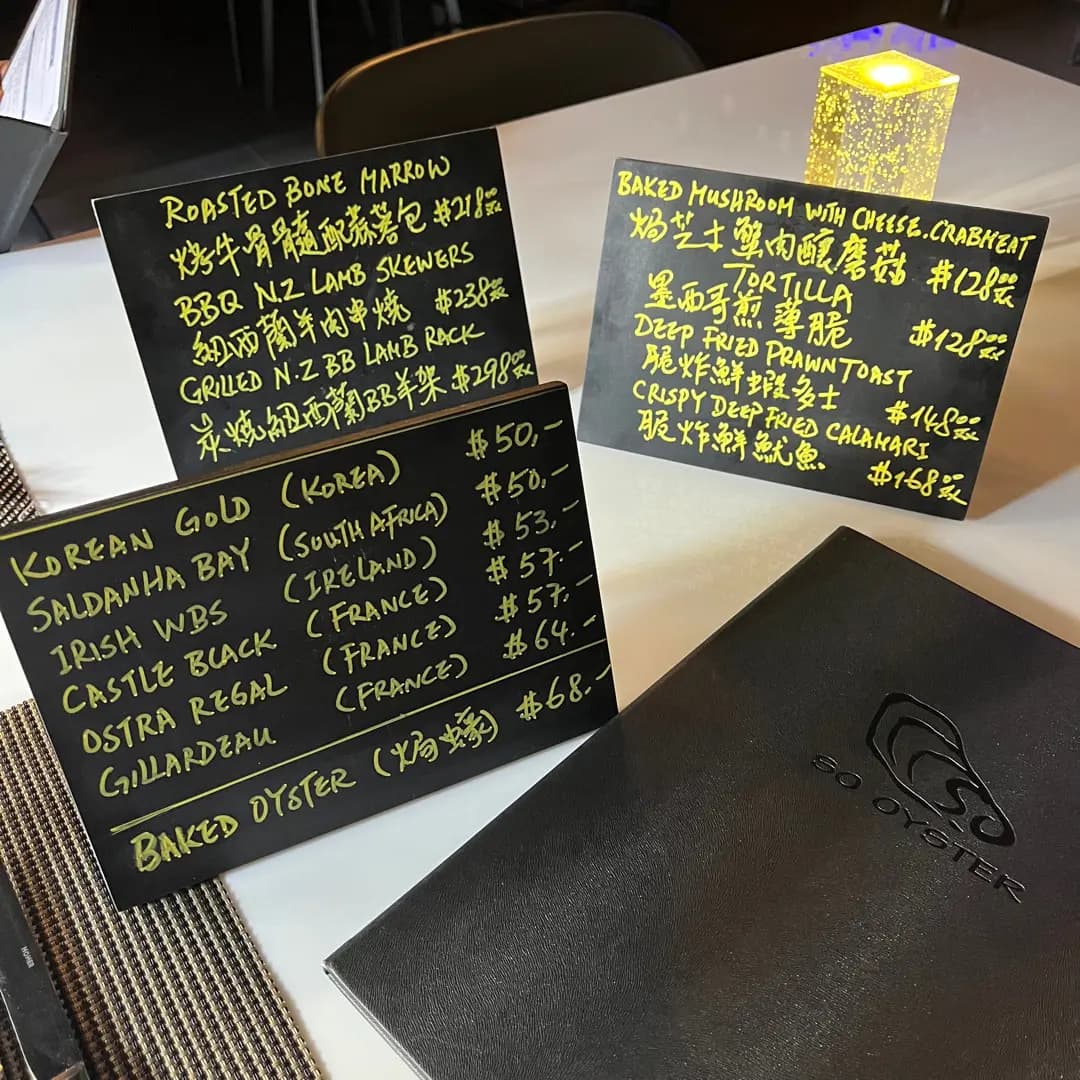 ROASTED BONE MARROW
烤牛骨髓配蒜蓉包 $218.00
BBQ N.Z LAMB SKEWERS
紐西蘭羊肉串燒 $238.00
GRILLED N.Z BB LAMB RACK
炭燒紐西蘭BB羊架 $298.00
BAKED MUSHROOM WITH CHEESE.CRABMEAT
焗芝士蟹肉釀磨菇 $128.00
TORTILLA
墨西哥煎薄脆 $128.00
DEEP FRIED PRAWN TOAST
脆炸鮮蝦多士 $148.00
CRISPY DEEP FRIED CALAMARI
脆炸鮮魷魚 $168.00
KOREAN GOLD (KOREA) $50.-
SALDANHA BAY (SOUTH AFRICA) $50.-
IRISH WBS (IRELAND) $53.-
CASTLE BLACK (FRANCE) $57.-
OSTRA REGAL (FRANCE) $57.-
GILLARDEAU (FRANCE) $64.-
BAKED OYSTER (焗蠔) $68.-
SO
SO OYSTER